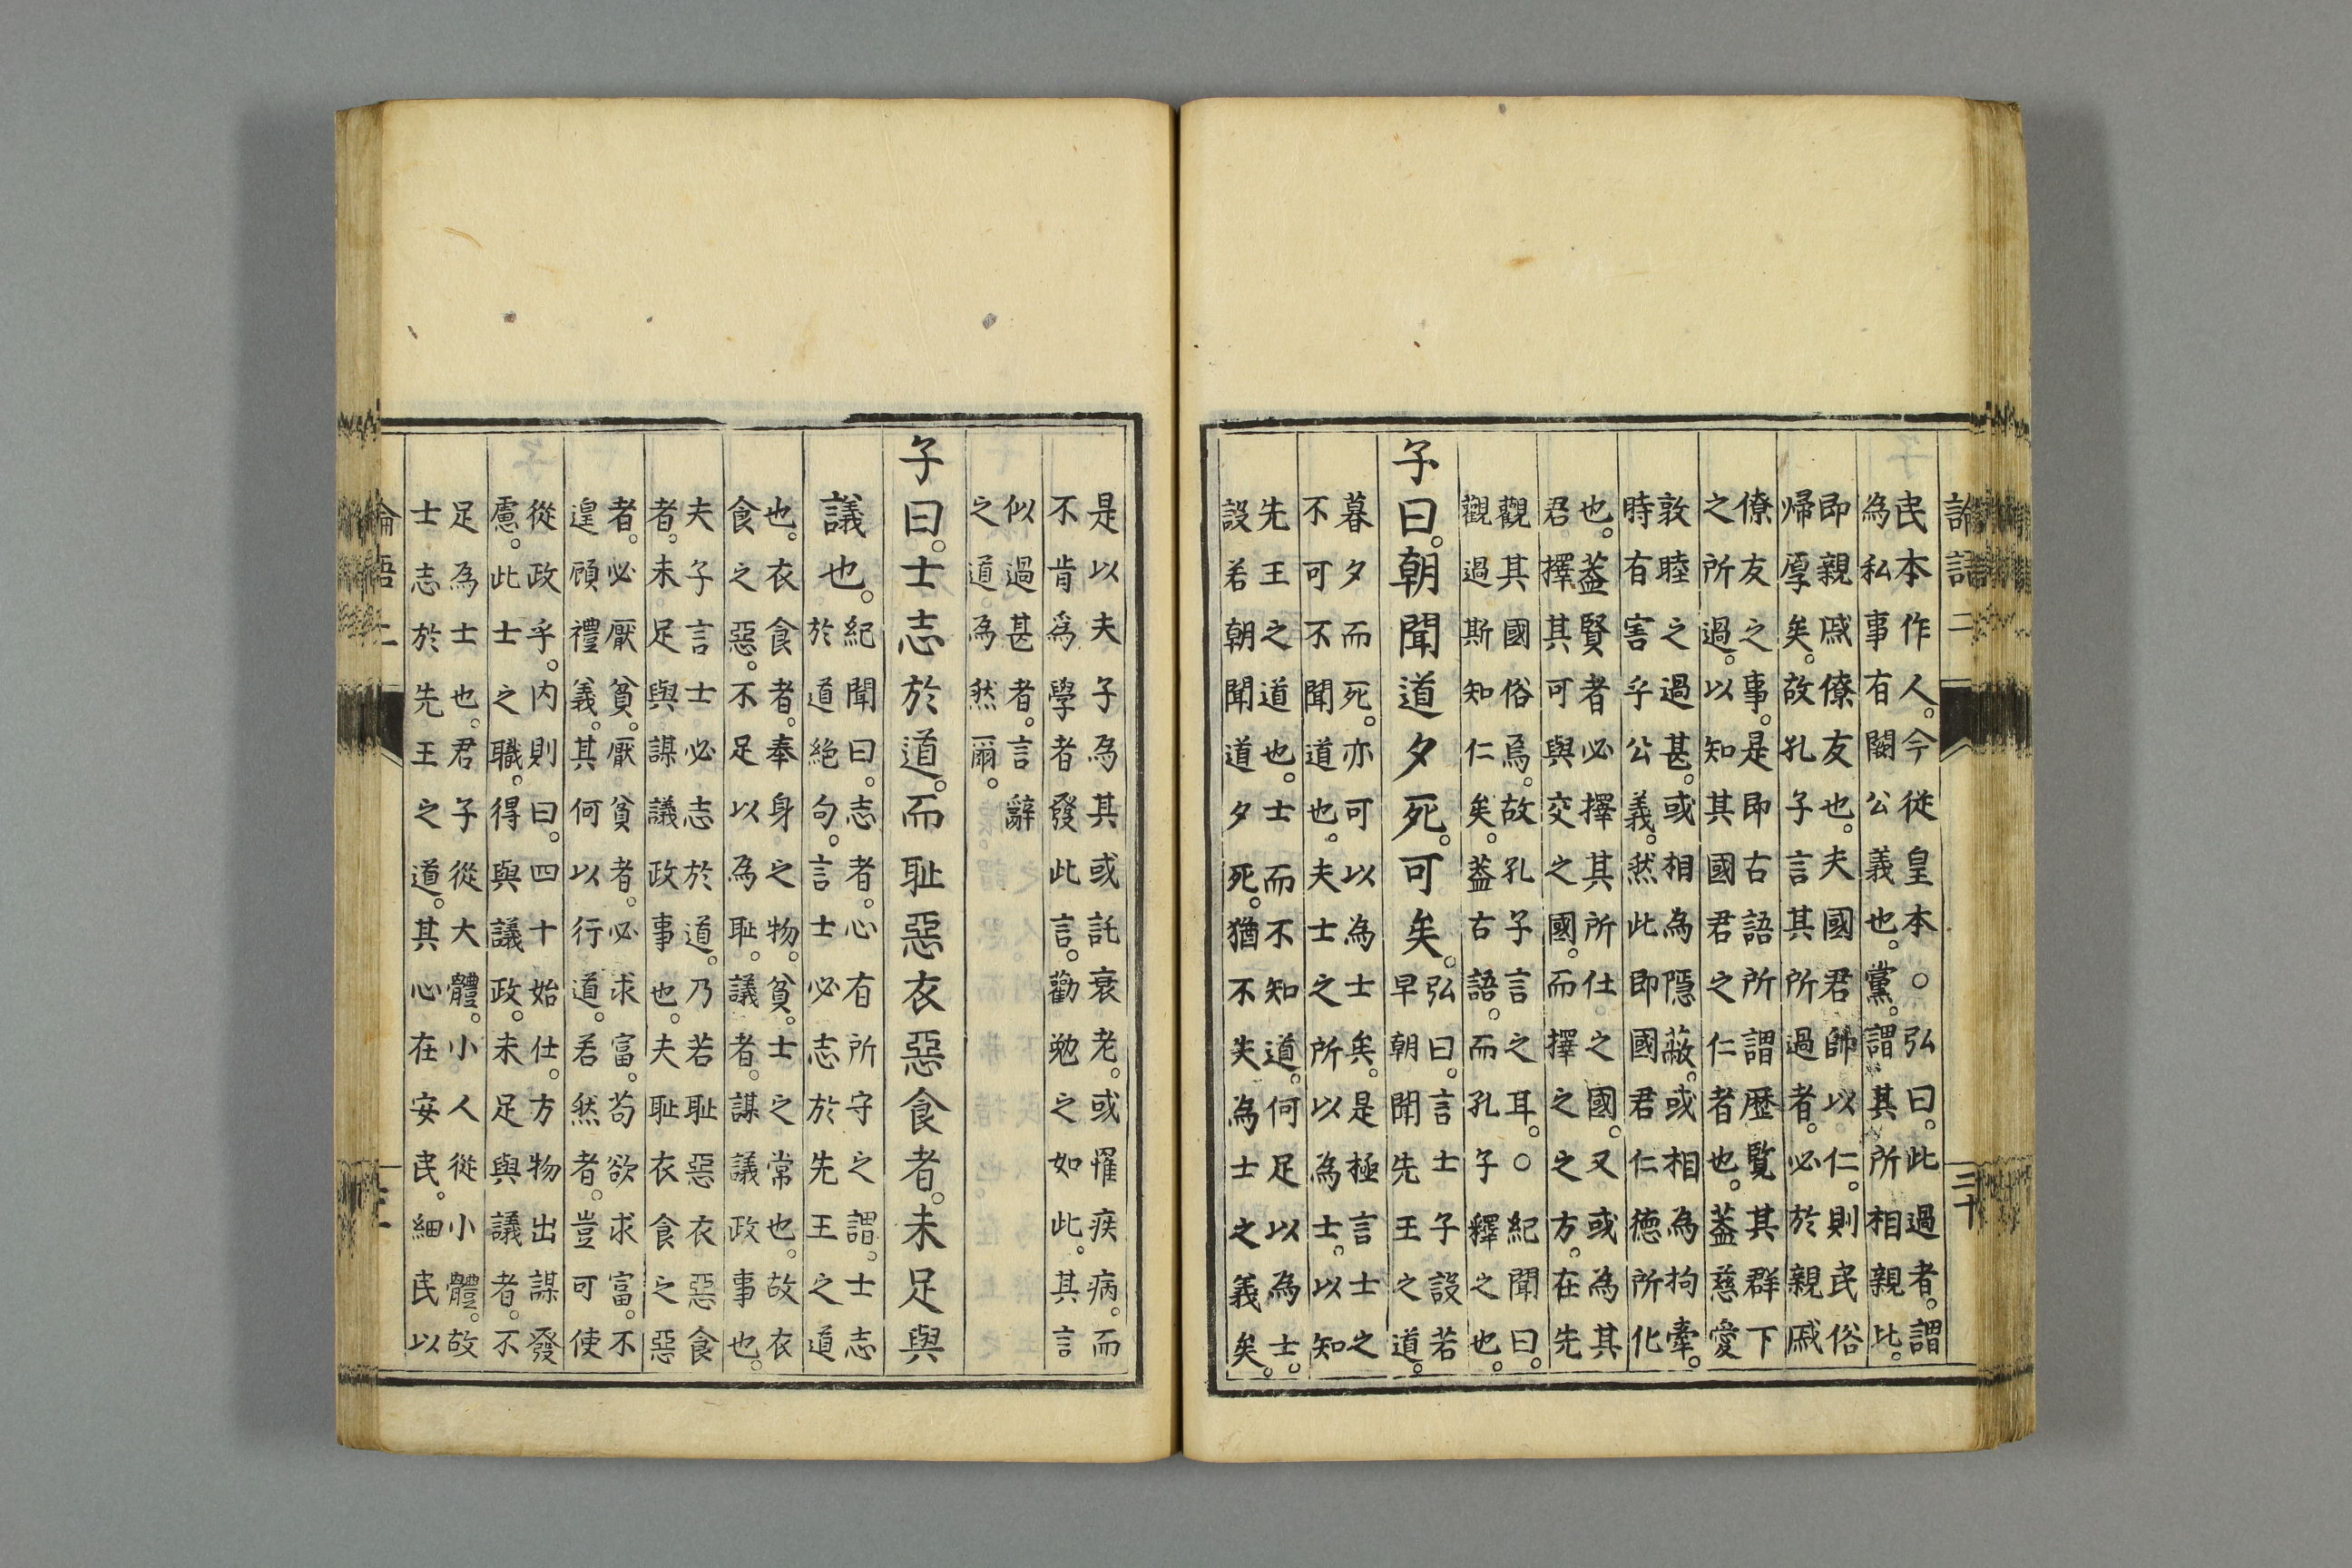 論語二
三十
民本作人。今從皇本○弘曰。此過者。謂
為私事有闕公義也。黨。謂其所相親比。
即親戚僚友也。夫國君帥以仁。則民俗
帰厚矣。故孔子言其所過者。必於親戚
僚友之事。是即古語所謂歷覧其群下
之所過。以知其國君之仁者也。蓋慈愛
敦睦之過甚。或相為隱蔽。或相為拘牽。
時有害乎公義。然此即國君仁德所化
也。蓋賢者必擇其所仕之國。又或為其
君。擇其可與交之國。而擇之之方。在先
觀其國俗焉。故孔子言之耳。○紀聞曰。
觀過斯知仁矣。蓋古語。而孔子釋之也。
子曰。朝聞道夕死。可矣。
弘曰。言士子設若
早朝聞先王之道。
暮夕而死。亦可以為士矣。是極言士之
不可不聞道也。夫士之所以為士。以知
先王之道也。士而不知道。何足以為士。
設若朝聞道夕死。猶不失為士之義矣。
是以夫子為其或託衰老。或罹疾病。而
不肯為學者發此言。勸勉之如此。其言
似過甚者。言辭
之道。為然爾。
子曰。士志於道。而耻惡衣惡食者。未足與
議也。
紀聞曰。志者。心有所守之謂。士志
於道絕句。言士必志於先王之道
也。衣食者。奉身之物。貧。士之常也。故衣
食之惡。不足以為耻。議者。謀議政事也。
夫子言士必志於道。乃若耻惡衣惡食
者。未足與謀議政事也。夫耻衣食之惡
者。必厭貧。厭貧者。必求富。苟欲求富。不
遑顧禮義。其何以行道。若然者。豈可使
從政乎。內則曰。四十始仕。方物出謀發
慮。此士之職。得與議政。未足與議者。不
足為士也。君子從大體。小人從小體。故
士志於先王之道。其心在安民。細民以
論語二